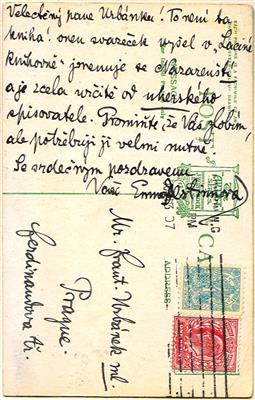 Velectěný pane Urbánku! To není ta
kniha! onen svazeček vyšel v „Laciné
knihovně“ jmenuje se Nazarenisté
a je zcela určitě od uherského
spisovatele. Promiňte, že Vás zlobím,
ale potřebuji ji velmi nutně.
Se srdečným pozdravem
Vaše Emma
Mr. Frant. Urbánek ml.
Prague.
Ferdinandova tř.
POST
CA
ADDRESS
PM
07